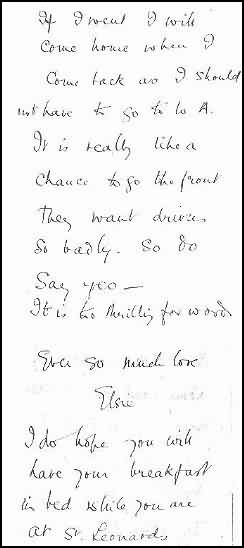 If I went I will
come home when I
come back as I should
not have to go to W A.
It is really like a
chance to go the front
they want drivers
so badly. So do
say yes —
It is too thrilling for words
Ever so much love
Elsie
I do hope you will
have your breakfast
in bed while you are
at St. Leonards